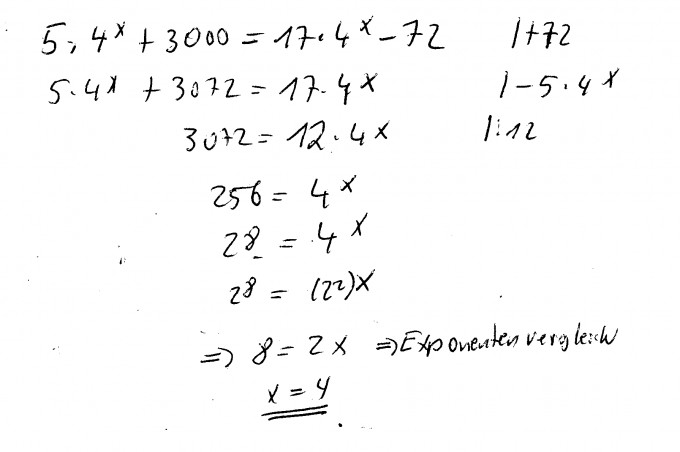 5 · 4^x + 3000 = 17 · 4^x - 72 | +72
5 · 4^x + 3072 = 17 · 4^x | - 5 · 4^x
3072 = 12 · 4^x | : 12
256 = 4^x
2^8 = 4^x
2^8 = (2^2)^x
⇒ 8 = 2x ⇒ Exponentenvergleich
x = 4